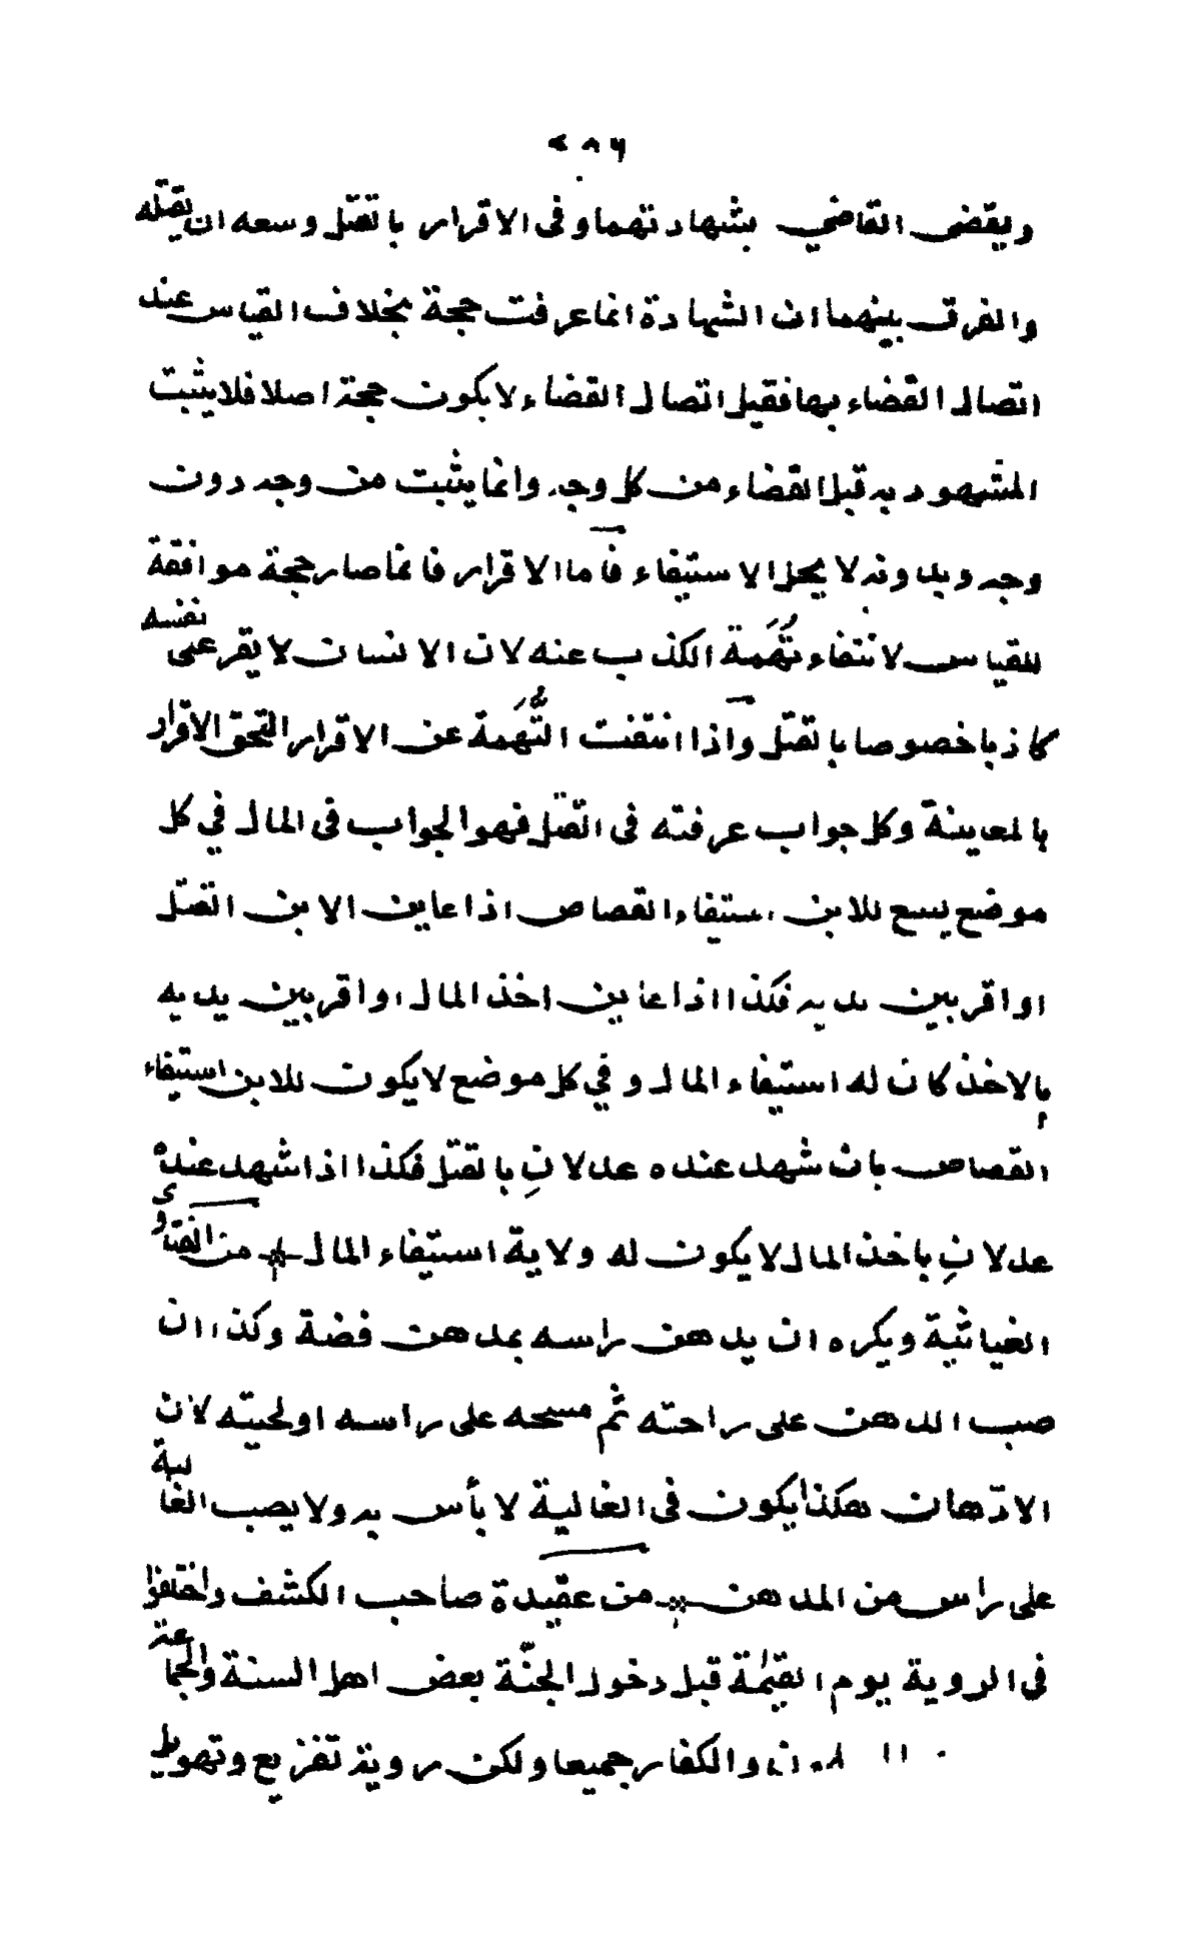 ويقضى القاضي بشهادتهما وفى الاقرار بالقتل وسعه ان يقتله
والفرق بينهما ان الشهادة انما عرفت حجة بخلاف القياس عند
اتصال القضاء بها فقيل اتصال القضاء لا يكون حجة اصلا فلا يثبت
المشهود به قبل القضاء من كل وجه وانما يثبت من وجه دون
وجه وبدونه لا يحل الاستيفاء فاما الاقرار فانما صار حجة موافقة
للقياس لانتفاء تُهَمة الكذب عنه لان الانسان لا يقر على نفسه
كاذبا خصوصا بالقتل واذا انتفت التُّهَمة عن الاقرار التحق الاقرار
بالمعاينة وكل جواب عرفته فى القتل فهو الجواب فى المال في كل
موضع يسع للابن استيفاء القصاص اذا عاين الابن القتل
او اقر بين يديه فكذا اذا عاين اخذ المال او اقر بين يديه
بالاخذ كان له استيفاء المال وفي كل موضع لا يكون للابن استيفاء
القصاص بان شهد عنده عدلانِ بالقتل فكذا اذا شهد عنده
عدلانِ باخذ المال لا يكون له ولاية استيفاء المال من الفتاوى
الغياثية ويكره ان يدهن راسه بمدهن فضة وكذا ان
صب الدهن على راحته ثم مسحه على راسه او لحيته لان
الادّهان هكذا يكون فى الغالية لا بأس به ولا يصب الغالية
على راس من المدهن من عقيدة صاحب الكشف واختلفوا
فى الروية يوم القيٰمة قبل دخول الجنّة بعض اهل السنة والجماعة
والكفار جميعا ولكن روية تفزيع وتهويل